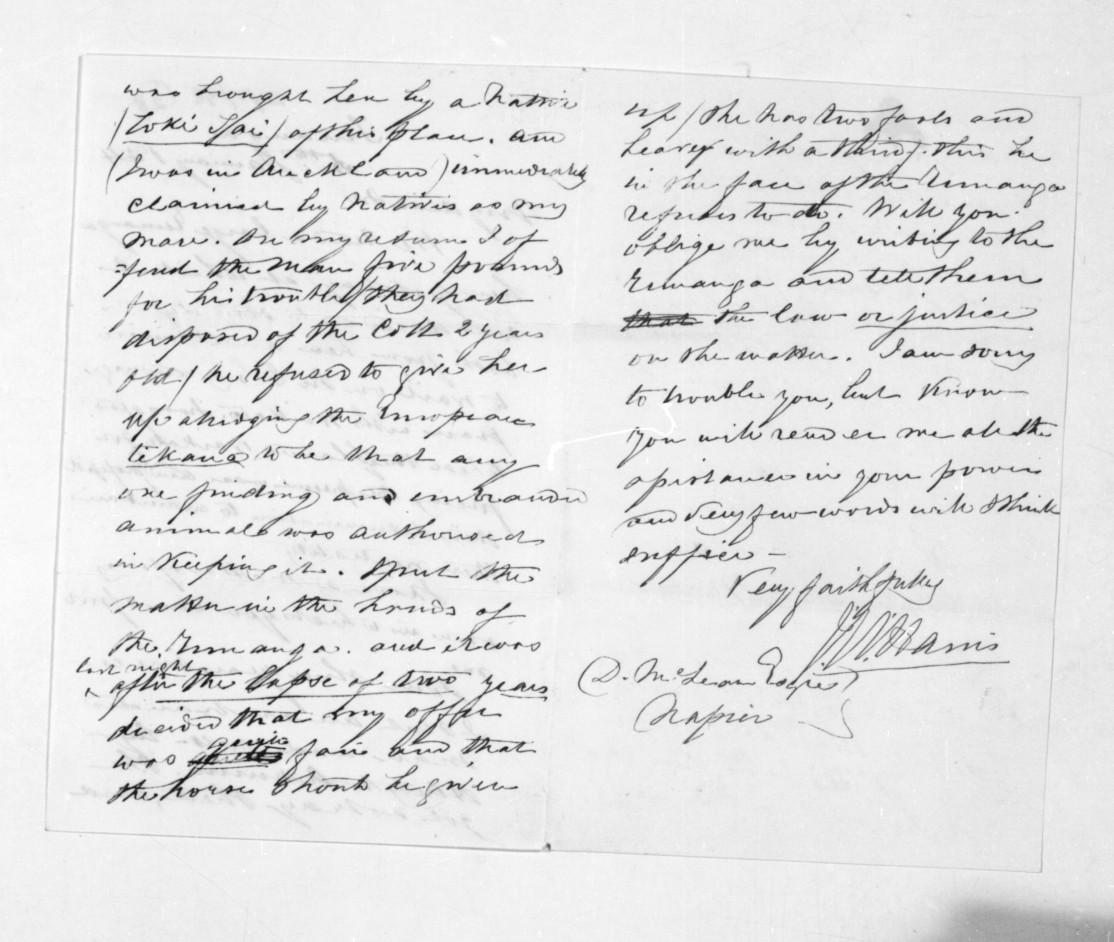 was brought here by a Native
(Toki Tai) of this place. and
(I was in Auckland) immediately
claimed by Natives as my
mare. On my return I of
-fered the man five pounds
for his trouble (they had
disposed of the Colt 2 years
old) he refused to give her
up alledging the European
tekanga to be that any
one finding any unbranded
animal was authorised
in Keeping it. I put the
matter in the hands of
the Runanga. and it was
last night
after the lapse of two years
decided that my offer
was quite fair and that
the horse should be given
up (she has two foals and
heavy with a third). this he
in the face of the Runanga
refuses to do. Will you
oblige me by writing to the
Runanga and tell them
that the law or justice
on the matter. I am sorry
to trouble you, but Know
you will render me all the
assistance in your power
and very few words will I think
suffice -
Very faithfully
J. W. Harris
D. McLean Esqre
Napier